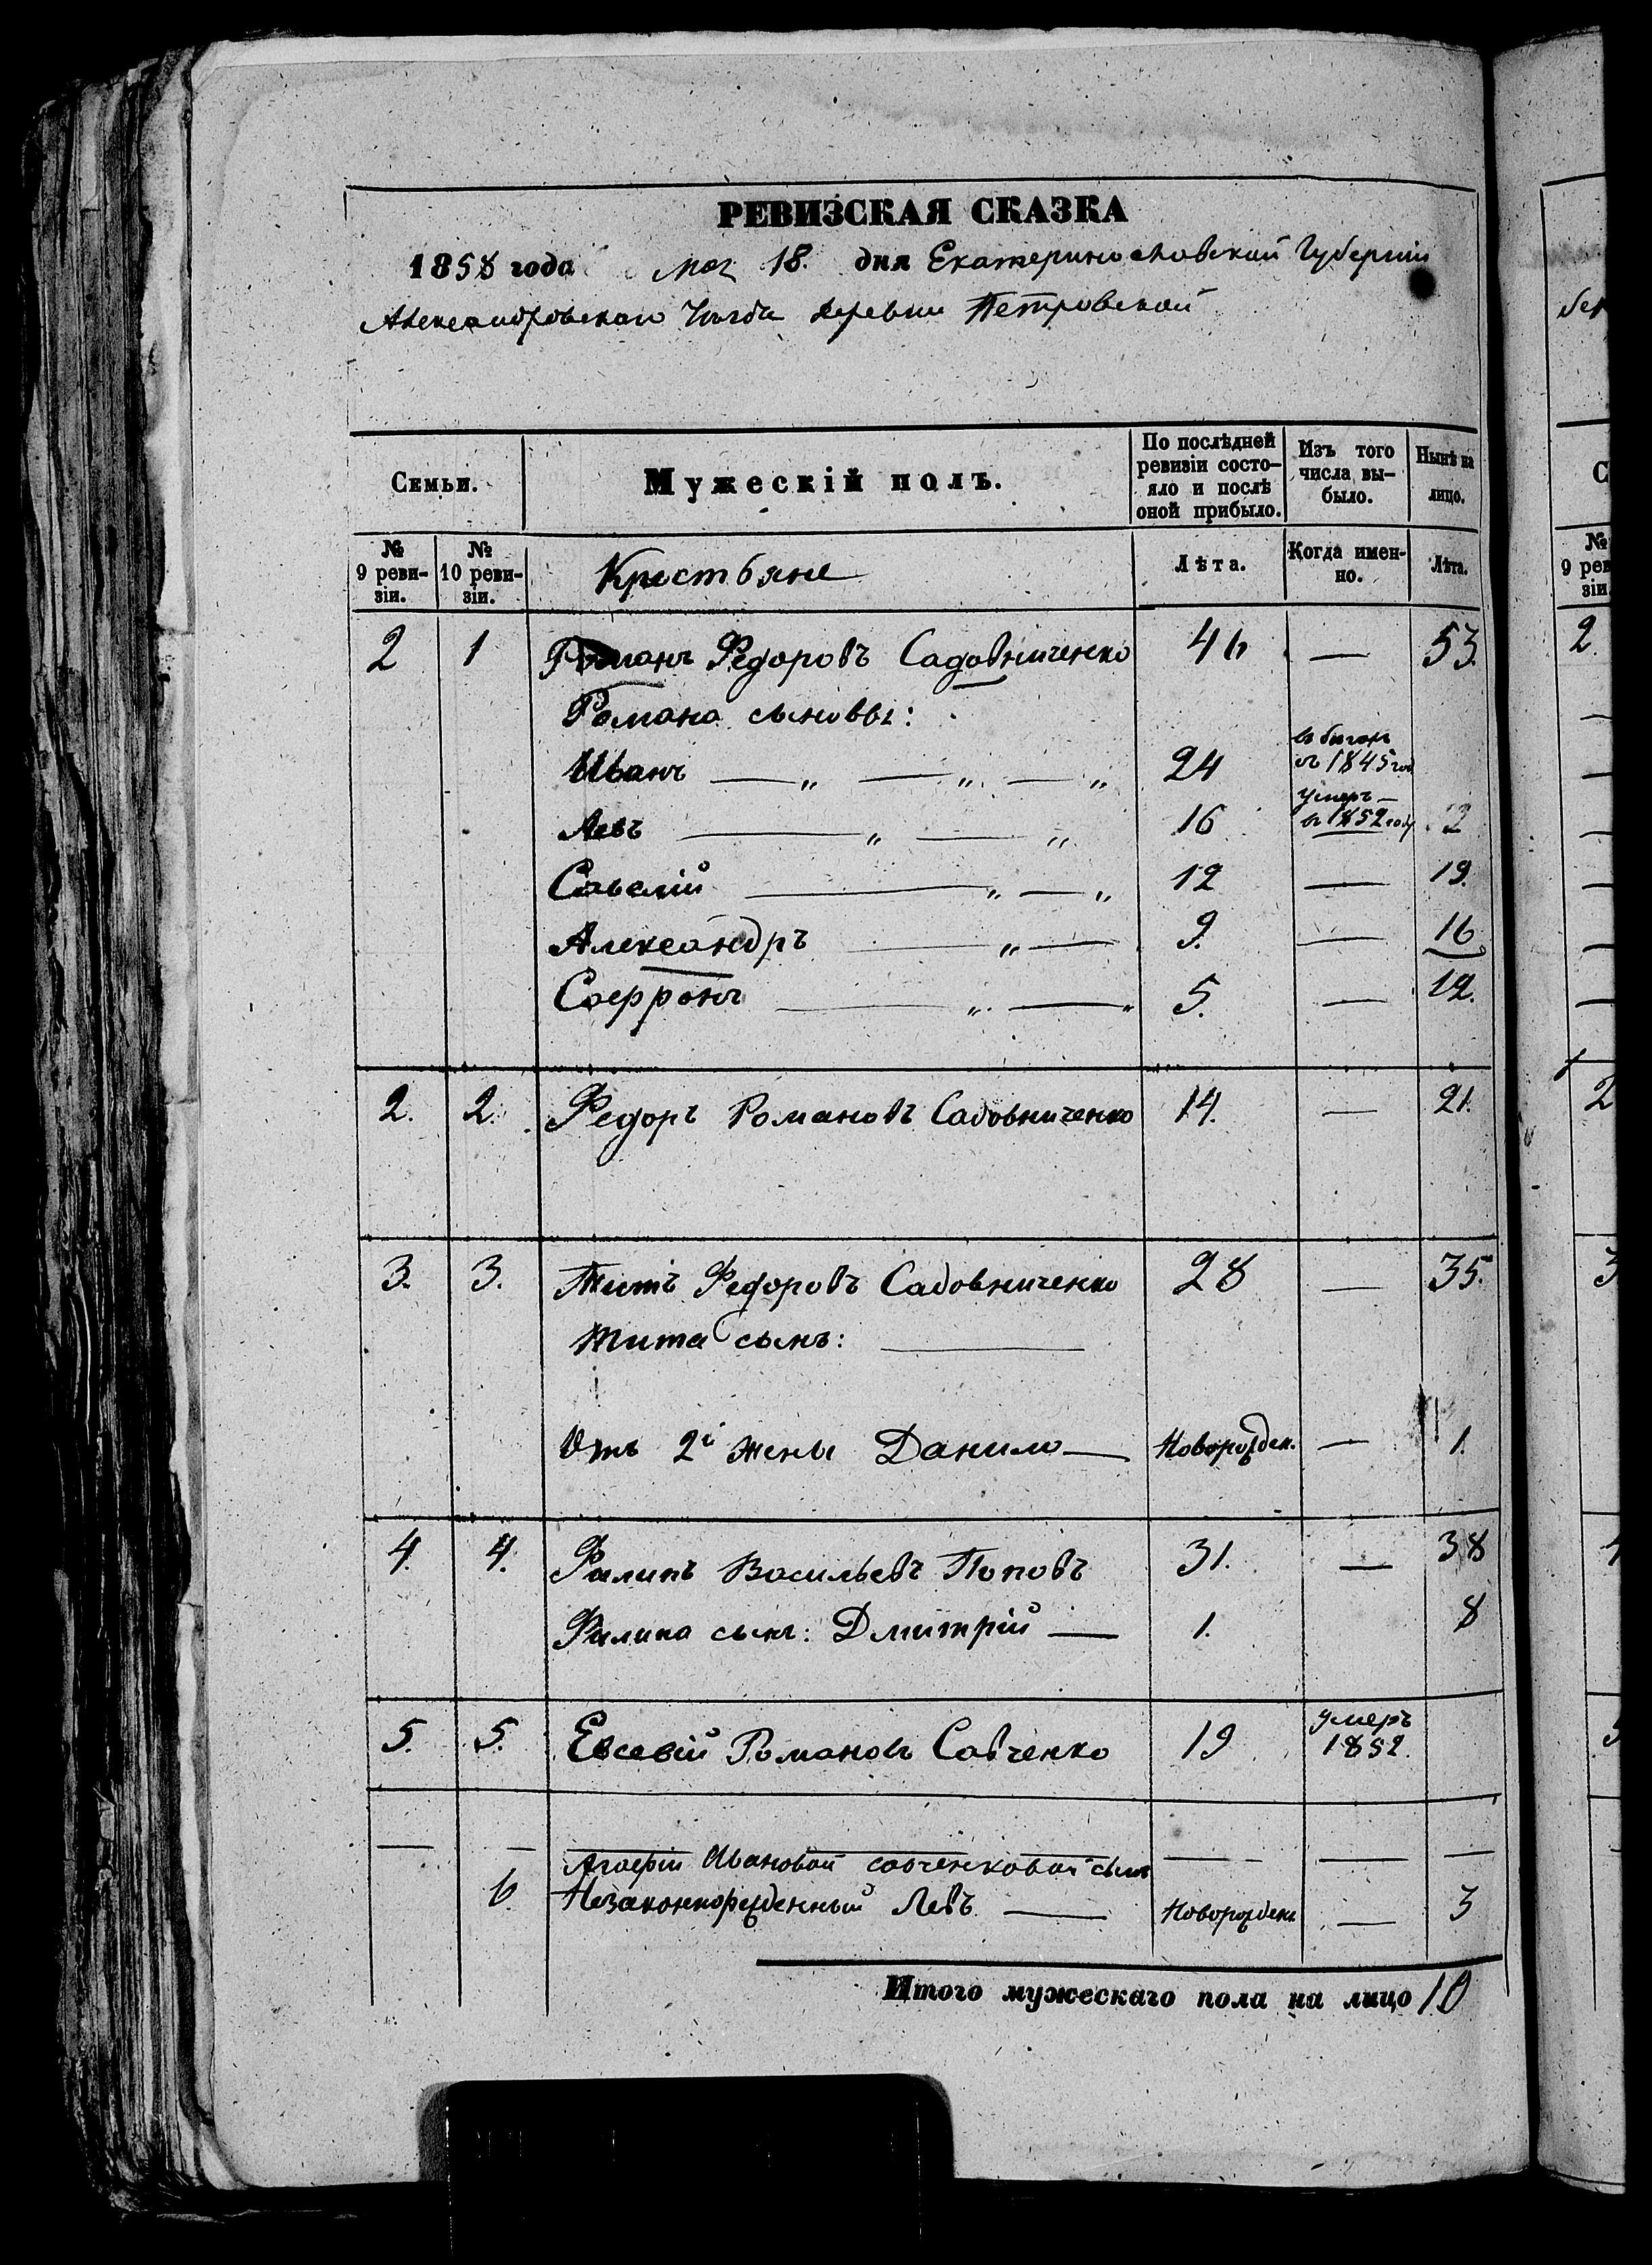 РЕВИЗСКАЯ СКАЗКА
1858 года Мая 18. дня Екатеринославской Губернии
Александровскаго Уезда деревни Петровской
Семьи.
Мужескій полъ.
По послѣдней ревизіи состояло и послѣ оной прибыло.
Изъ того числа выбыло.
Нынѣ на лицо.
№ 9 ревизіи.
№ 10 ревизіи.
Крестьяне
Лѣта.
Когда именно.
Лѣта.
2 1 Романъ Федоровъ Садовниченко 46 — 53.
Романа сыновья:
Иванъ — „ — „ — „ 24 въ бегахъ съ 1845 года
Левъ — „ — „ 16 умеръ — въ 1852 году
Савелій — „ — „ 12 — 19.
Александръ — „ — 9. — 16
Софронъ — „ — „ 5. — 12.
2. 2. Федоръ Романовъ Садовниченко 14. — 21.
3. 3. Титъ Федоровъ Садовниченко 28 — 35.
Тита сынъ: —
Отъ 2й жены Данило — Новорожден. — 1.
4. 4. Филипъ Васильевъ Поповъ 31. — 38
Филипа сынъ: Дмитрій — 1. 8
5. 5. Евсевій Романовъ Савченко 19 умеръ 1852.
— — Агафіи Ивановой Савченковой сынъ — — —
6. Незаконнорожденный Левъ — Новорожден. — 3
Итого мужескаго пола на лицо 10
2
№
9 рев
зіи